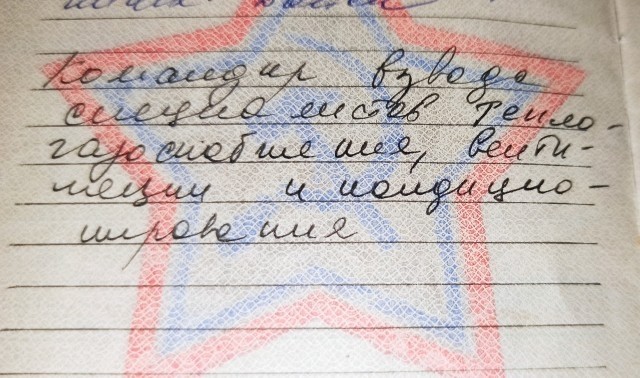 Командир взвода
специалистов тепло-
газоснабжения, венти-
ляции и кондицио-
нирования